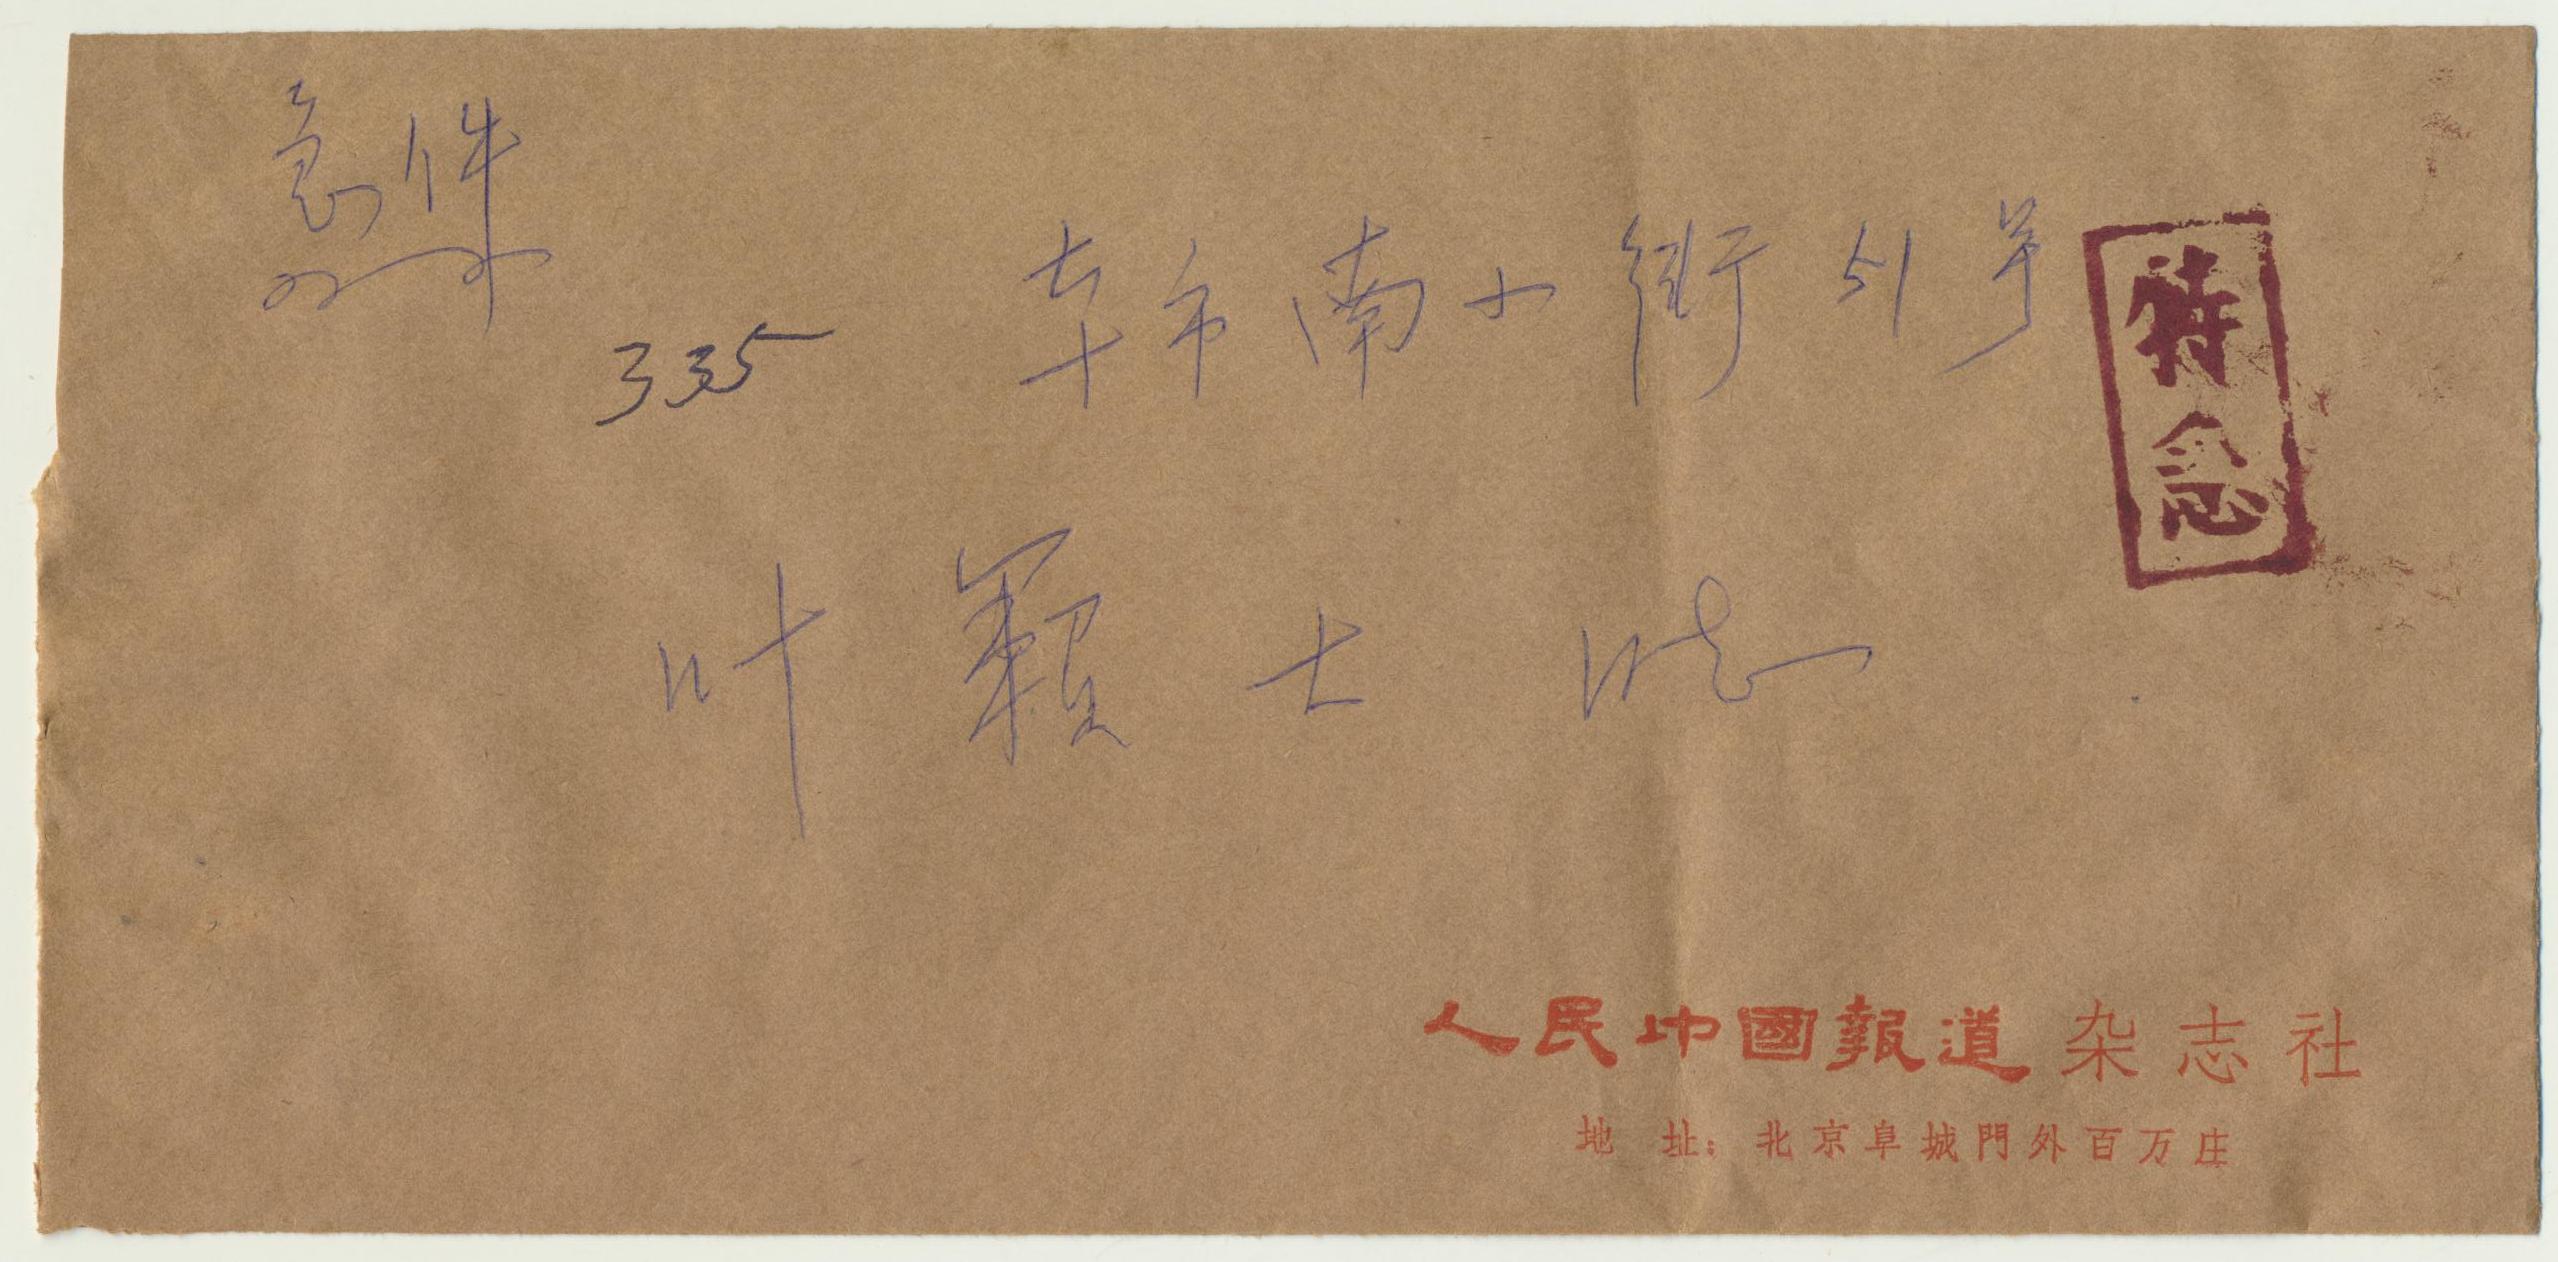 急件
本市南小街51号
335
特急
叶籁士 同志
人民中國報道杂志社
地 址：北京阜城門外百万庄